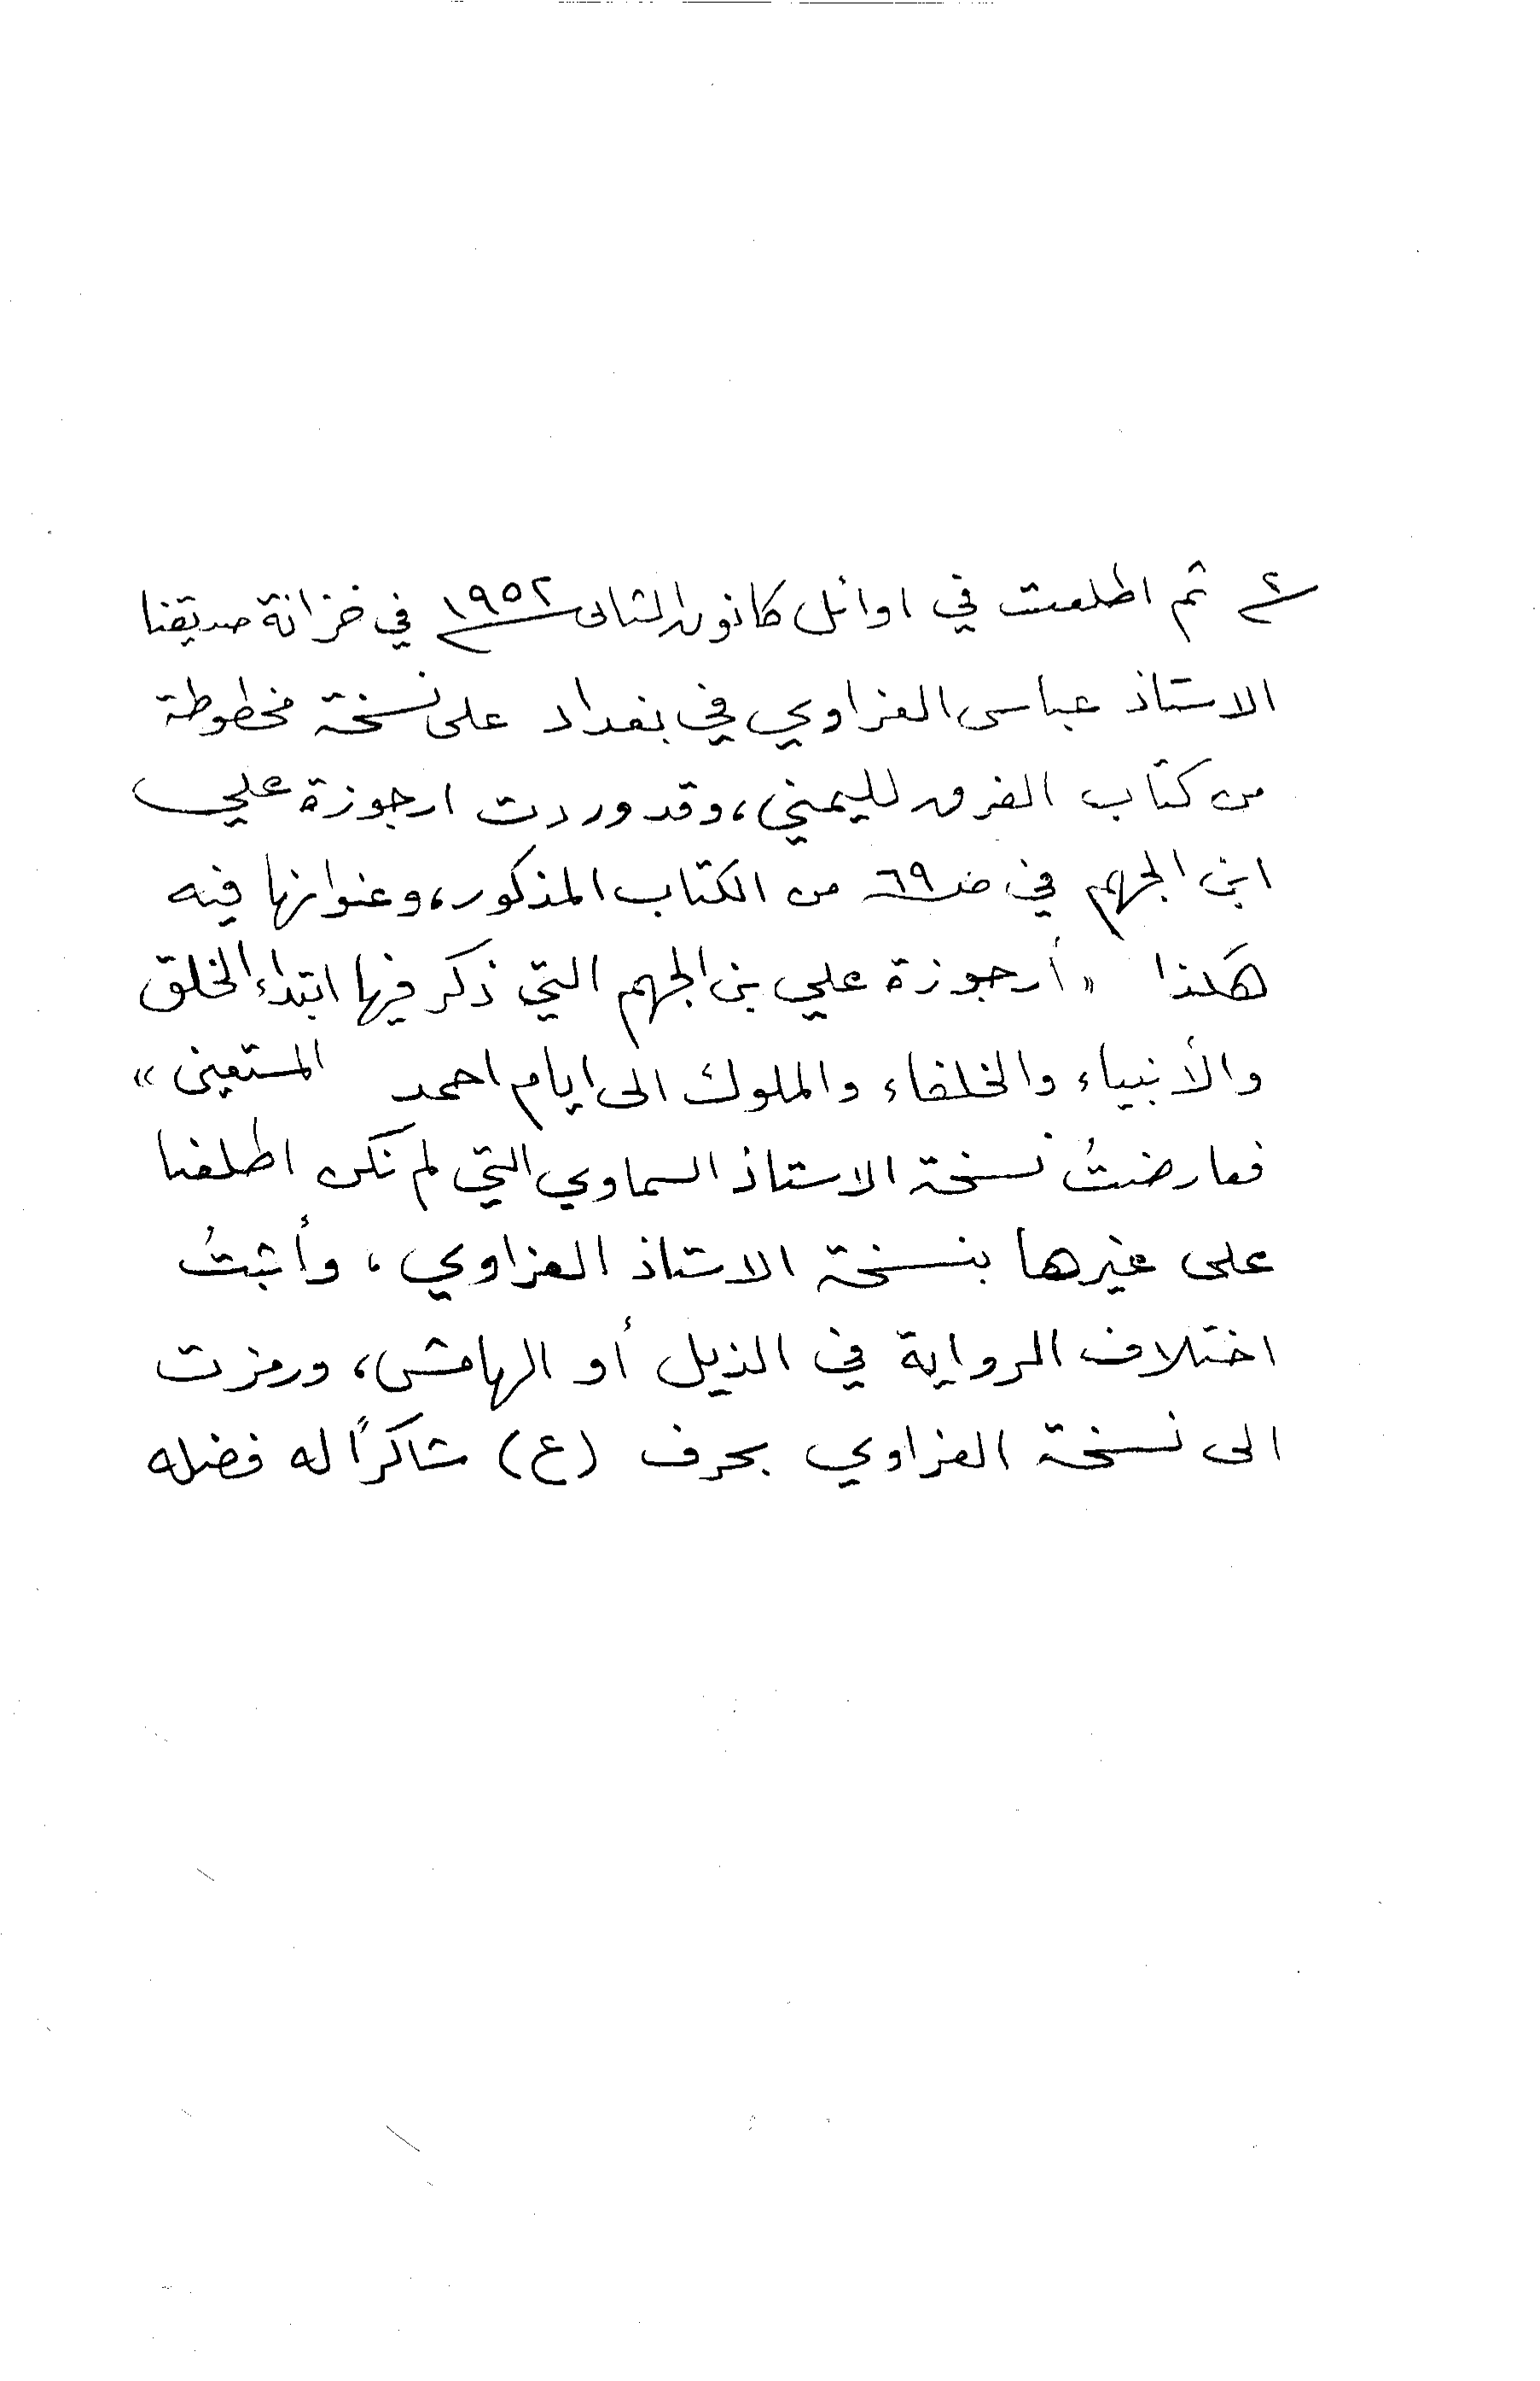 ثم اطلعت في اوائل كانون الثانى ١٩٥٢ في خزانة صديقنا
الاستاذ عباس العزاوي في بغداد على نسخة مخطوطة
من كتاب الفرق لليمني، وقد وردت ارجوزة علي
ابن الجهم في ص ٦٩ من الكتاب المذكور، وعنوانها فيه
هكذا «أرجوزة علي بن الجهم التي ذكر فيها ابتداء الخلق
والأنبياء والخلفاء والملوك الى ايام احمد المستعين»
فعارضتُ نسخة الاستاذ السماوي التي لم نكن اطلعنا
على غيرها بنسخة الاستاذ العزاوي، وأثبتُ
اختلاف الرواية في الذيل أو الهامش، ورمزت
الى نسخة العزاوي بحرف (ع) شاكرًا له فضله